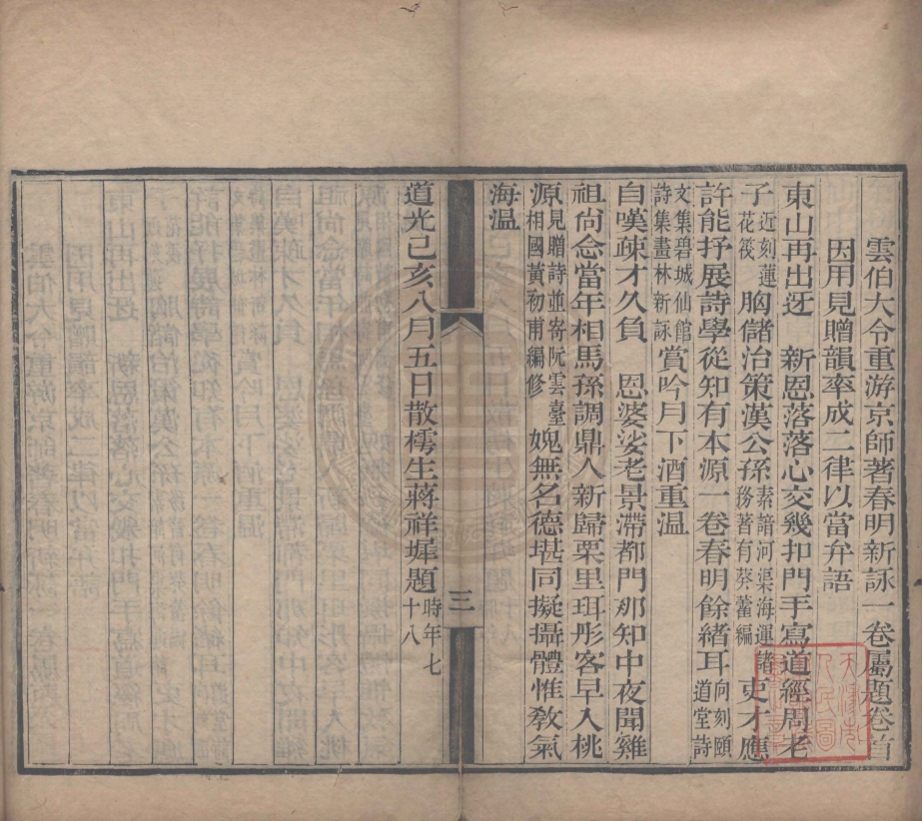 雲伯大令重游京師著春明新詠一卷屬題卷首
因用見贈韻率成二律以當弁語
東山再出迓　新恩落落心交幾扣門手寫道經周老
子近刻蓮花筏胸儲治策漢公孫素諳河渠海運諸務著有葵藿編吏才應
許能抒展詩學從知有本源一卷春明餘緒耳向刻頤道堂詩
文集碧城仙館詩集畫林新詠賞吟月下酒重溫
自嘆疎才久負　恩婆娑老景滯都門那知中夜聞雞
祖尚念當年相馬孫調鼎人新歸栗里珥彤客早入桃
源見贈詩並寄阮雲臺相國黃初甫編修媿無名德堪同擬攝體惟教氣
海温
道光己亥八月五日散樗生蔣祥墀題時年七十八
三
天津市人民圖